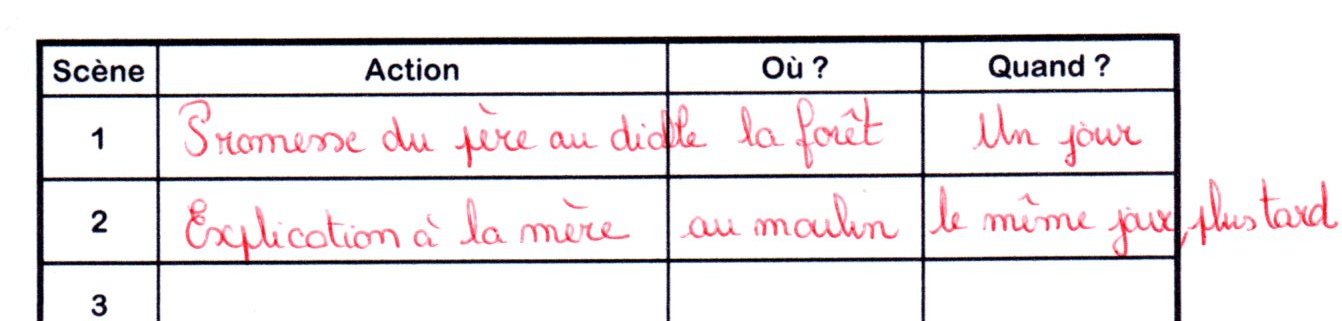 Scène Action Où ? Quand ?
1 Promesse du père au diable la forêt Un jour
2 Explication à la mère au moulin le même jour, plus tard
3